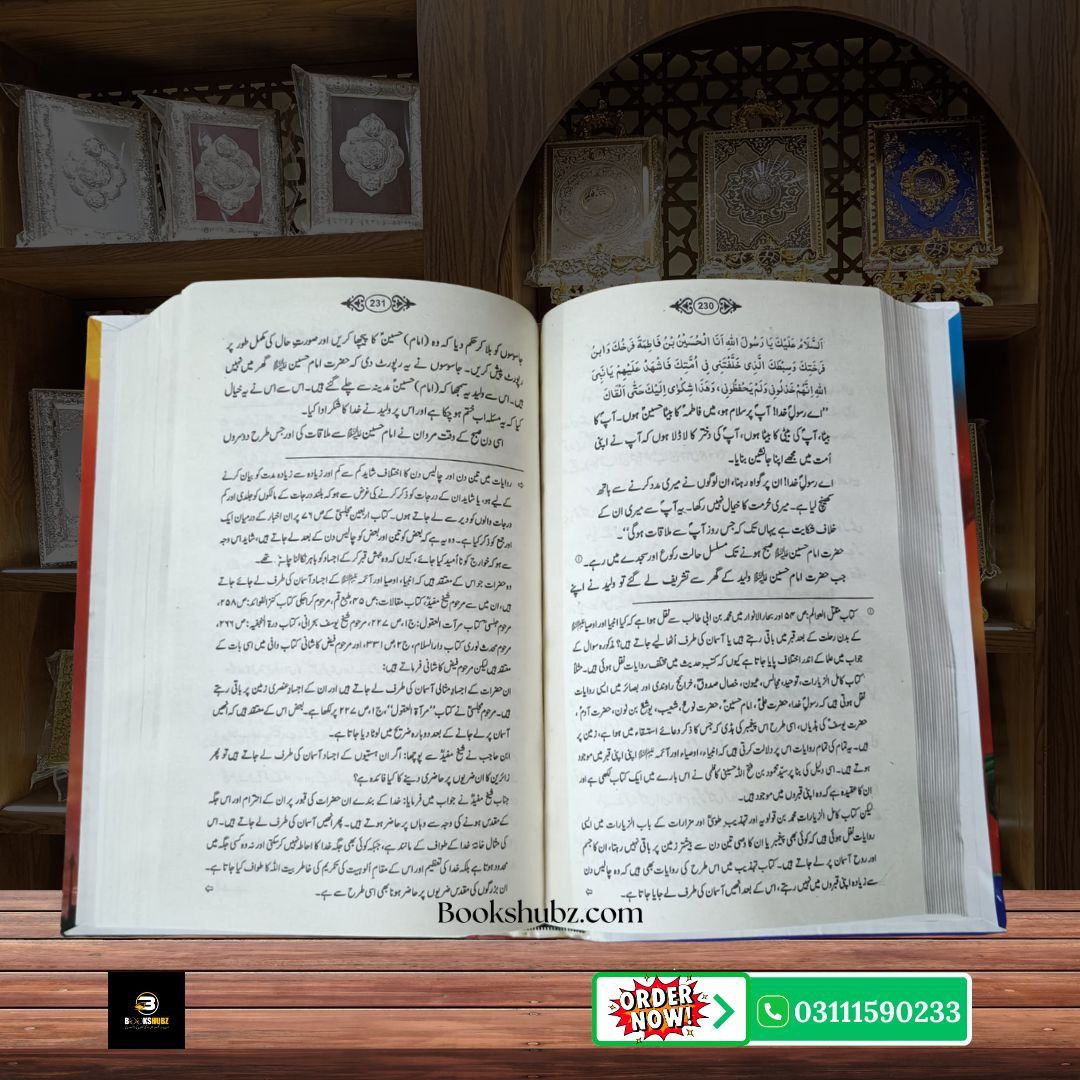 230
اَلسَّلَامُ عَلَیْكَ یَا رَسُوْلَ اللهِ اَنَا الْحُسَیْنُ بْنُ فَاطِمَةَ فَرْخُكَ وَابْنُ
فَرْخَتِكَ وَسِبْطُكَ الَّذِی خَلَّفْتَنِی فِی اُمَّتِكَ فَاشْهَدْ عَلَیْهِمْ یَا نَبِیَّ
اللهِ اِنَّهُمْ خَذَلُوْنِی وَلَمْ یَحْفَظُوْنِی، وَهٰذَا شِكْوَایَ اِلَیْكَ حَتّٰی اَلْقَاكَ
"اے رسولِ خدا! آپؐ پر سلام ہو، میں فاطمہؑ کا بیٹا حسینؑ ہوں۔ آپؐ کا
بیٹا، آپؐ کی بیٹی کا بیٹا ہوں، آپؐ کی دختر کا لاڈلا ہوں کہ آپؐ نے اپنی
اُمت میں مجھے اپنا جانشین بنایا۔
اے رسولِ خدا! ان پر گواہ رہنا، ان لوگوں نے میری مدد کرنے سے ہاتھ
کھینچ لیا ہے۔ میری حُرمت کا خیال نہیں رکھا۔ یہ آپؐ سے میری ان کے
خلاف شکایت ہے یہاں تک کہ جس روز آپؐ سے ملاقات ہو گی"۔
حضرت امام حسین علیہ السلام صبح ہونے تک مسلسل حالتِ رکوع اور سجدے میں رہے۔ ①
جب حضرت امام حسین علیہ السلام ولید کے گھر سے تشریف لے گئے تو ولید نے اپنے
① کتاب مقتل العوالم: ص ۵۴ اور بحارالانوار میں محمد بن ابی طالب سے نقل ہوا ہے کہ کیا انبیا اور اوصیا علیہم السلام
کے بدن رحلت کے بعد قبر میں باقی رہتے ہیں یا آسمان کی طرف اُٹھا لیے جاتے ہیں؟ مذکورہ سوال کے
جواب میں علما کے اندر اختلاف پایا جاتا ہے کیوں کہ کتب حدیث میں مختلف روایات نقل ہوئی ہیں۔ مثلاً
کتاب کامل الزیارات، توحید، مجالس، عیون، خصال صدوقؒ، خرائج راوندی اور بصائر میں ایسی روایات
نقل ہوئی ہیں کہ رسولِ خدا، حضرت علیؑ، امام حسینؑ، حضرت نوحؑ، شعیب، یوشع بن نون، حضرت آدمؑ،
حضرت یوسفؑ کی ہڈیاں، اسی طرح اس پیغمبر کی ہڈی کہ جس کا ذکر دعائے استسقاء میں ہوا ہے، زمین پر
ہیں۔ یہ تمام کی تمام روایات اس پر دلالت کرتی ہیں کہ انبیاء، اوصیاء اور آئمہ علیہم السلام اپنی اپنی قبر میں موجود
ہوتے ہیں۔ اسی دلیل کی بنا پر سیّد محمود بن فتح اللہ حسینی کاظمی نے اس بارے میں ایک کتاب لکھی ہے اور
ان کا عقیدہ ہے کہ وہ اپنی قبروں میں موجود ہیں۔
لیکن کتاب کامل الزیارات محمد بن قولویہ اور تہذیب طوسیؒ اور مزارات کے باب الزیارات میں ایسی
روایات نقل ہوئی ہیں کہ کوئی بھی پیغمبر یا ان کا وصی تین دن سے بیشتر زمین پر باقی نہیں رہتا، ان کا جسم
اور روح آسمان پر لے جاتے ہیں۔ کتاب تہذیب میں اس طرح کی روایات بھی ہیں کہ وہ چالیس دن
سے زیادہ اپنی قبروں میں نہیں رہتے، اس کے بعد انھیں آسمان کی طرف لے جایا جاتا ہے۔
231
جاسوسوں کو بلا کر حکم دیا کہ وہ (امام) حسینؑ کا پیچھا کریں اور صورتِ حال کی مکمل طور پر
رپورٹ پیش کریں۔ جاسوسوں نے یہ رپورٹ دی کہ حضرت امام حسین علیہ السلام گھر میں نہیں
ہیں۔ اس سے ولید یہ سمجھا کہ (امام) حسینؑ مدینہ سے چلے گئے ہیں۔ اس سے اس نے یہ خیال
کیا کہ یہ مسئلہ اب ختم ہو چکا ہے اور اس پر ولید نے خدا کا شکر ادا کیا۔
اسی دن صبح کے وقت مروان نے امام حسین علیہ السلام سے ملاقات کی اور جس طرح دوسروں
روایات میں تین دن اور چالیس دن کا اختلاف شاید کم سے کم اور زیادہ سے زیادہ مدت کو بیان کرنے
کے لیے ہو، یا شاید ان کے درجات کو ذکر کرنے کی غرض سے ہو کہ بلند درجات کے مالکوں کو جلدی اور کم
درجات والوں کو دیر سے لے جاتے ہوں۔ کتاب اربعین مجلسیؒ کے ص ۴۶ پر ان اخبار کے درمیان ایک
اور جمع کو ذکر کیا ہے۔ وہ یہ ہے کہ بعض کو تین اور بعض کو چالیس دن کے بعد لے جاتے ہیں، شاید اس وجہ
سے ہو کہ خوارج کو نا اُمید کیا جائے، کیوں کہ وہ نبش قبر کر کے اجساد کو باہر نکالنا چاہتے تھے۔
وہ حضرات جو اس کے معتقد ہیں کہ انبیا، اوصیا اور آئمہ علیہم السلام کے اجساد آسمان کی طرف لے جائے جاتے
ہیں، ان میں سے مرحوم شیخ مفیدؒ، کتاب مقالات: ص ۴۵، طبع قم، مرحوم کراجکی کتاب کنزالفوائد: ص ۲۵۸،
مرحوم مجلسیؒ کتاب مرآت العقول: ج ۱، ص ۲۲۷، مرحوم شیخ یوسف بحرانی، کتاب درۃ النجفیہ: ص ۲۶۶،
مرحوم محدث نوری کتاب دارالسلام، ج ۲، ص ۳۳۱، اور مرحوم فیض کاشانی کتاب وافی میں اسی بات کے
معتقد ہیں لیکن مرحوم فیض کاشانی فرماتے ہیں:
ان حضرات کے اجسادِ مثالی آسمان کی طرف لے جاتے ہیں اور ان کے اجسادِ عنصری زمین پر باقی رہتے
ہیں۔ مرحوم مجلسیؒ نے کتاب "مرآۃ العقول"، ج ۱، ص ۲۲۷ پر لکھا ہے۔ بعض اس کے معتقد ہیں کہ انھیں
آسمان پر لے جانے کے بعد دوبارہ ضریح میں لوٹا دیا جاتا ہے۔
ابن حاجب نے شیخ مفیدؒ سے پوچھا: اگر ان ہستیوں کے اجساد آسمان کی طرف لے جاتے ہیں تو پھر
زائرین کا ان ضریحوں پر حاضری دینے کا کیا فائدہ ہے؟
جناب شیخ مفیدؒ نے جواب میں فرمایا: خدا کے بندے ان حضرات کی قبور پر ان کے احترام اور اس جگہ
کے مقدس ہونے کی وجہ سے وہاں پر حاضر ہوتے ہیں۔ پھر انھیں آسمان کی طرف لے جاتے ہیں۔ اس
کی مثال خانۂ خدا کے طواف کے مانند ہے، جبکہ کوئی بھی جگہ خدا کا احاطہ نہیں کر سکتی اور نہ وہ کسی جگہ میں
محدود ہوتا ہے بلکہ خدا کی تعظیم اور اس کے مقامِ اُلوہیت کی تکریم کی خاطر بیت اللہ کا طواف کیا جاتا ہے۔
ان بزرگوں کی مقدس ضریحوں پر حاضر ہونا بھی اسی طرح سے ہے۔
Bookshubz.com
BOOKSHUBZ
ORDER
NOW!
03111590233